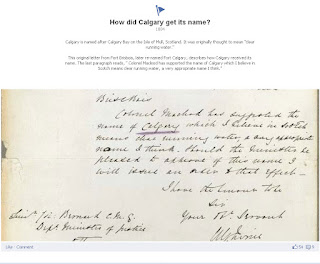 How did Calgary get its name?
1884
Calgary is named after Calgary Bay on the Isle of Mull, Scotland. It was originally thought to mean "clear
running water."
The original letter from Fort Brisbois, later renamed Fort Calgary, describes how Calgary received its
name. The last paragraph reads, " Colonel Macleod has supported the name of Calgary which I believe in
Scotch means clear running water, a very appropriate name I think."
Brisebois
Colonel Macleod has suggested the
name of Calgary which I believe in Scotch
means clear running water, a very appropriate
name I think. Should the minister be
pleased to approve of this name I
will issue an order to that effect-
I have the honour to be
Sir
Your Servant
Bernard C.M.G.
Dept. Minister of Justice
Irvine
Like · Comment